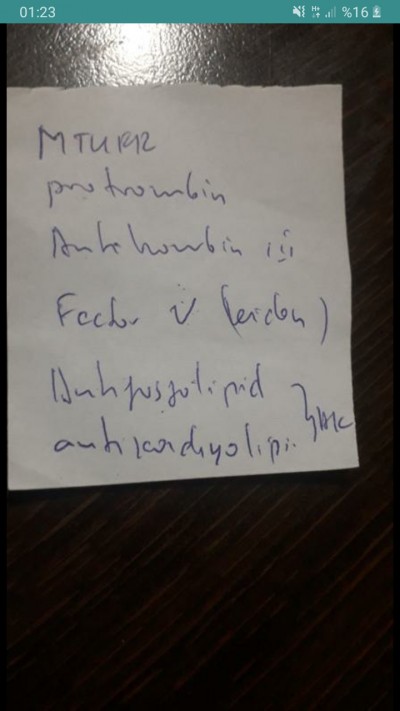 01:23
%16
MTHFR
protrombin
Antitrombin iii
Factor V (leiden)
Antifosfolipid
antikardiyolipin